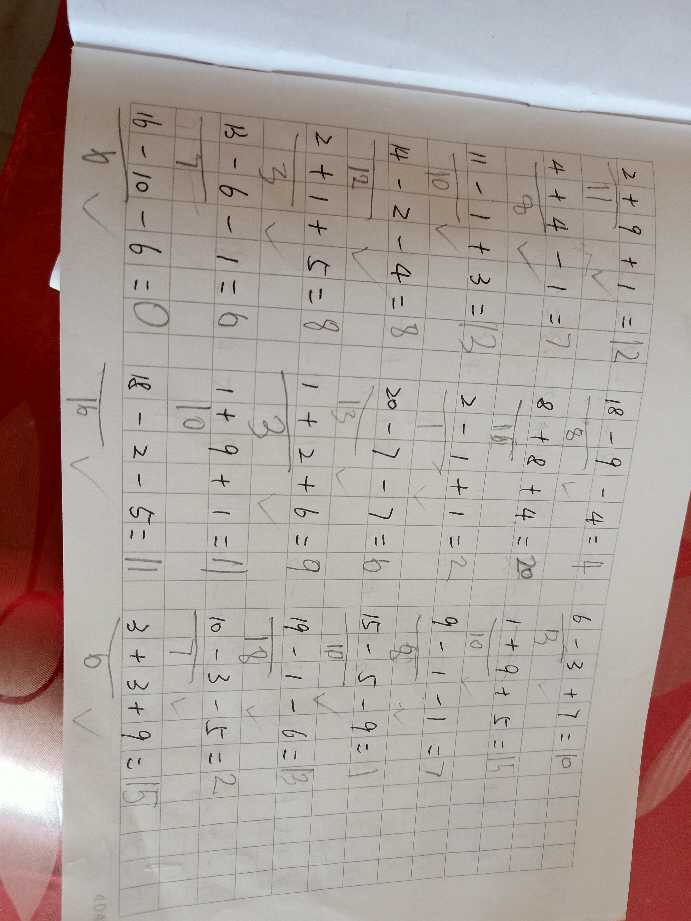 2 + 9 + 1 = 12 18 - 9 - 4 = 4 6 - 3 + 7 = 10
11 8 13
4 + 4 - 1 = 7 8 + 8 + 4 = 20 1 + 9 + 5 = 15
8 10
11 - 1 + 3 = 13 2 - 1 + 1 = 2 9 - 1 - 1 = 7
10 1
14 - 2 - 4 = 8 20 - 7 - 7 = 6 15 - 5 - 9 = 1
12 13 10
2 + 1 + 5 = 8 1 + 2 + 6 = 9 19 - 1 - 6 = 13
3 3 18
13 - 6 - 1 = 6 1 + 9 + 1 = 11 10 - 3 - 5 = 2
7 10 7
16 - 10 - 6 = 0 18 - 2 - 5 = 11 3 + 3 + 9 = 15
6 16 6